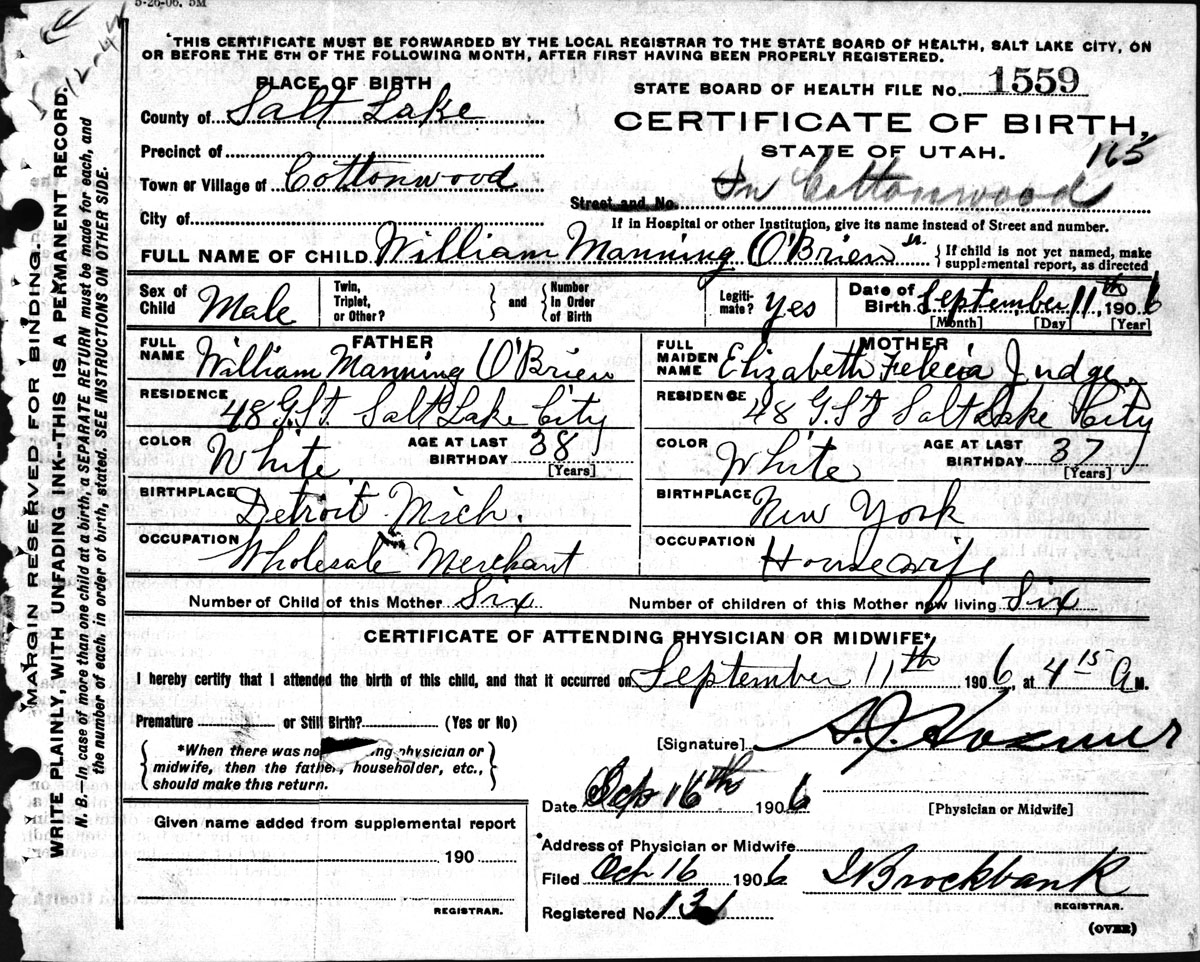 5-26-06. 5M
*THIS CERTIFICATE MUST BE FORWARDED BY THE LOCAL REGISTRAR TO THE STATE BOARD OF HEALTH, SALT LAKE CITY, ON
OR BEFORE THE 5TH OF THE FOLLOWING MONTH, AFTER FIRST HAVING BEEN PROPERLY REGISTERED.
PLACE OF BIRTH
STATE BOARD OF HEALTH FILE No. 1559
County of Salt Lake
CERTIFICATE OF BIRTH,
Precinct of
STATE OF UTAH. 165
Town or Village of Cottonwood
Street and No. In Cottonwood
City of
If in Hospital or other Institution, give its name instead of Street and number.
FULL NAME OF CHILD William Manning O'Brien Jr. {If child is not yet named, make supplemental report, as directed
Sex of Child Male
Twin, Triplet, or Other? } and { Number In Order of Birth
Legiti-mate? Yes
Date of Birth September 11th, 1906
[Month] [Day] [Year]
FATHER
FULL NAME William Manning O'Brien
RESIDENCE 48 G. St Salt Lake City
COLOR White AGE AT LAST BIRTHDAY 38 [Years]
BIRTHPLACE Detroit Mich.
OCCUPATION Wholesale Merchant
MOTHER
FULL MAIDEN NAME Elizabeth Felecia Judge
RESIDENCE 48 G. St Salt Lake City
COLOR White AGE AT LAST BIRTHDAY 37 [Years]
BIRTHPLACE New York
OCCUPATION Housewife
Number of Child of this Mother Six Number of children of this Mother now living Six
CERTIFICATE OF ATTENDING PHYSICIAN OR MIDWIFE*
I hereby certify that I attended the birth of this child, and that it occurred on September 11th 1906, at 4 15 A M.
Premature or Still Birth? (Yes or No)
[Signature]
*When there was no physician or
midwife, then the father, householder, etc.,
should make this return.
Date 16th 1906
[Physician or Midwife]
Given name added from supplemental report
190
REGISTRAR.
*Address of Physician or Midwife
Filed Oct 16 1906 Brockbank
REGISTRAR.
Registered No. 131
(OVER)
MARGIN RESERVED FOR BINDING.
WRITE PLAINLY, WITH UNFADING INK--THIS IS A PERMANENT RECORD.
N. B.—In case of more than one child at a birth, a SEPARATE RETURN must be made for each, and
the number of each, in order of birth, stated. SEE INSTRUCTIONS ON OTHER SIDE.